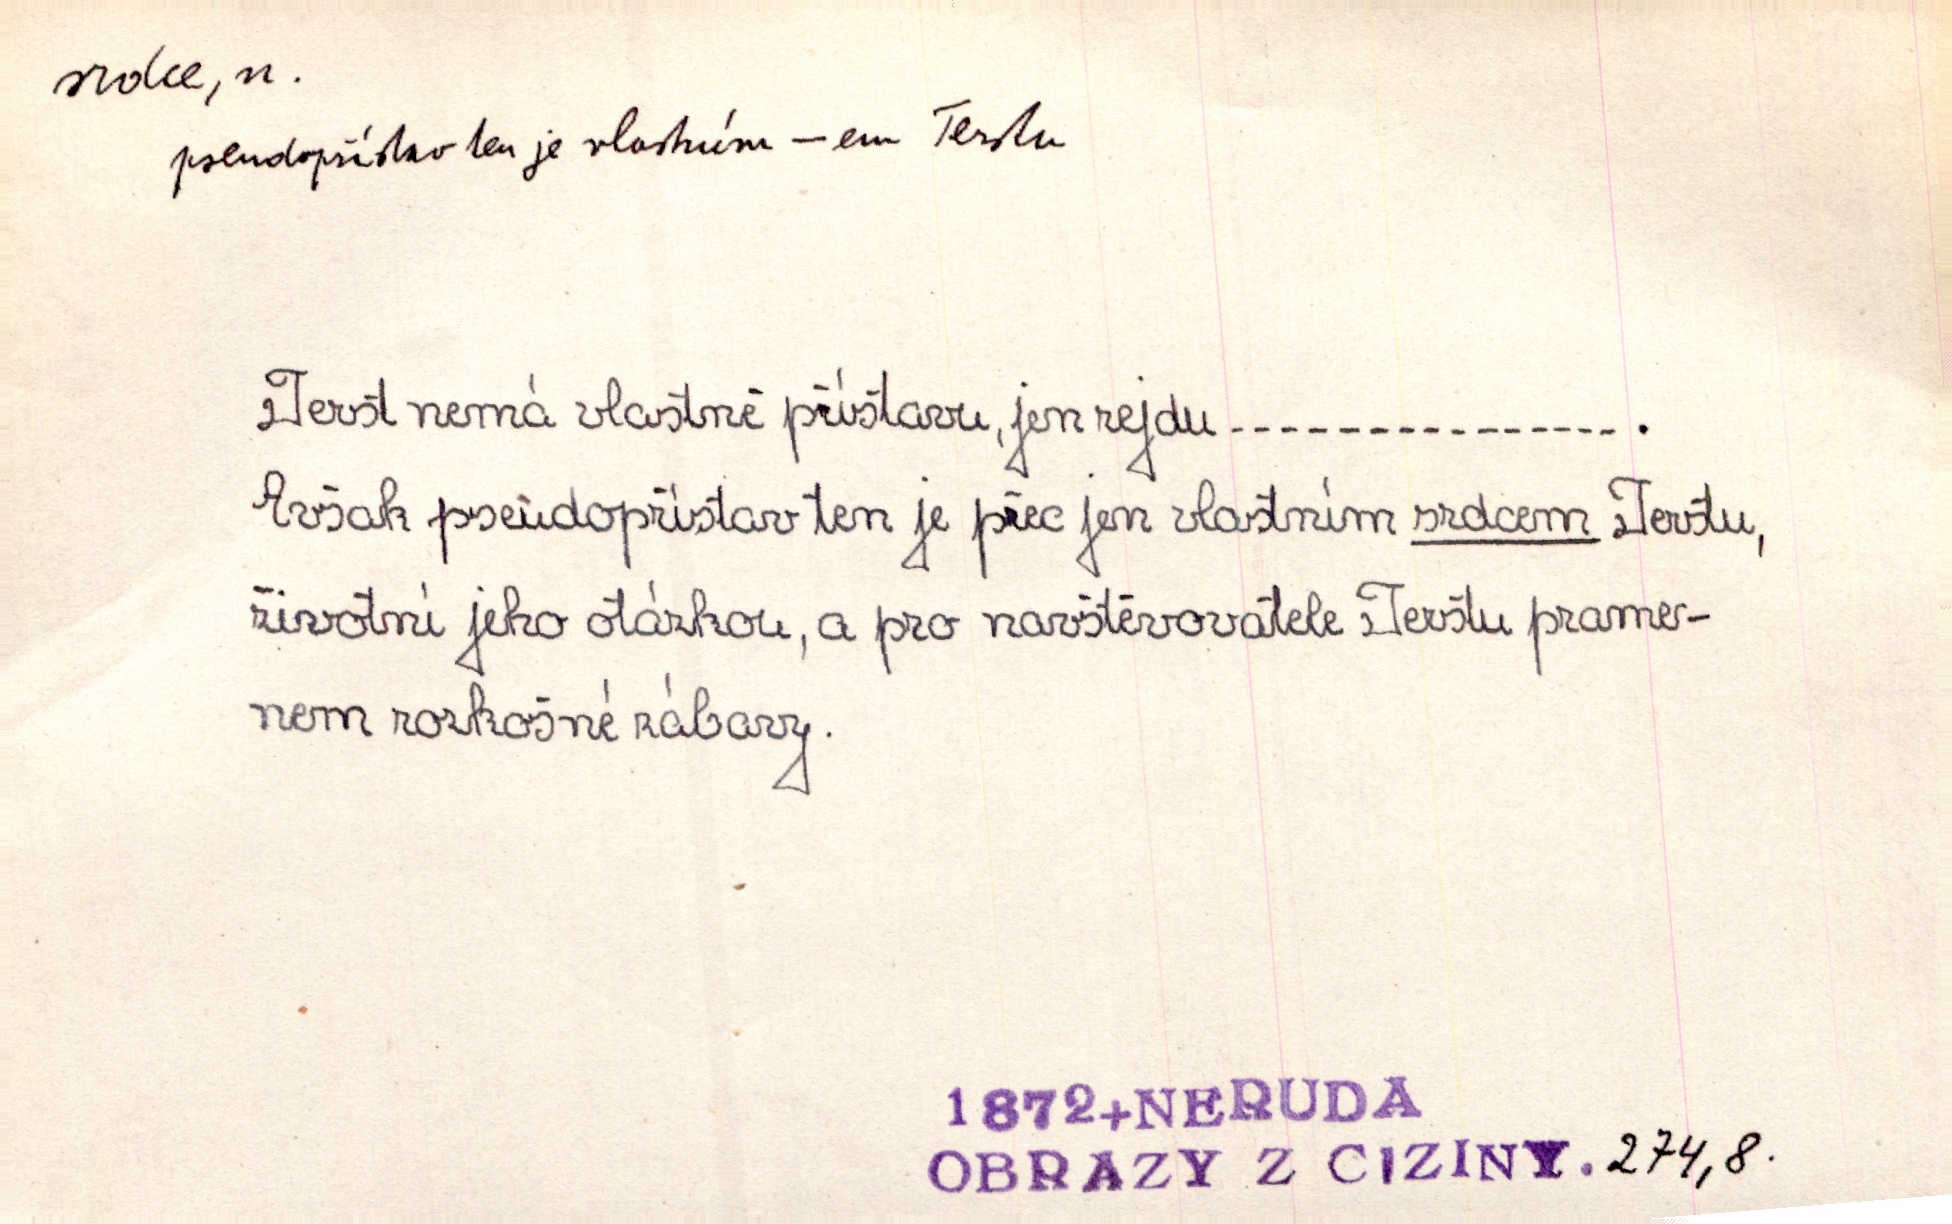 srdce, n.
pseudopřístav ten je vlastním –em Terstu
Terst nemá vlastně přístavu, jen rejdu ---------------- .
Avšak pseudopřístav ten je přec jen vlastním srdcem Terstu,
životní jeho otázkou, a pro navštěvovatele Terstu prame-
nem rozkošné zábavy.
1872+NERUDA
OBRAZY Z CIZINY. 274,8.